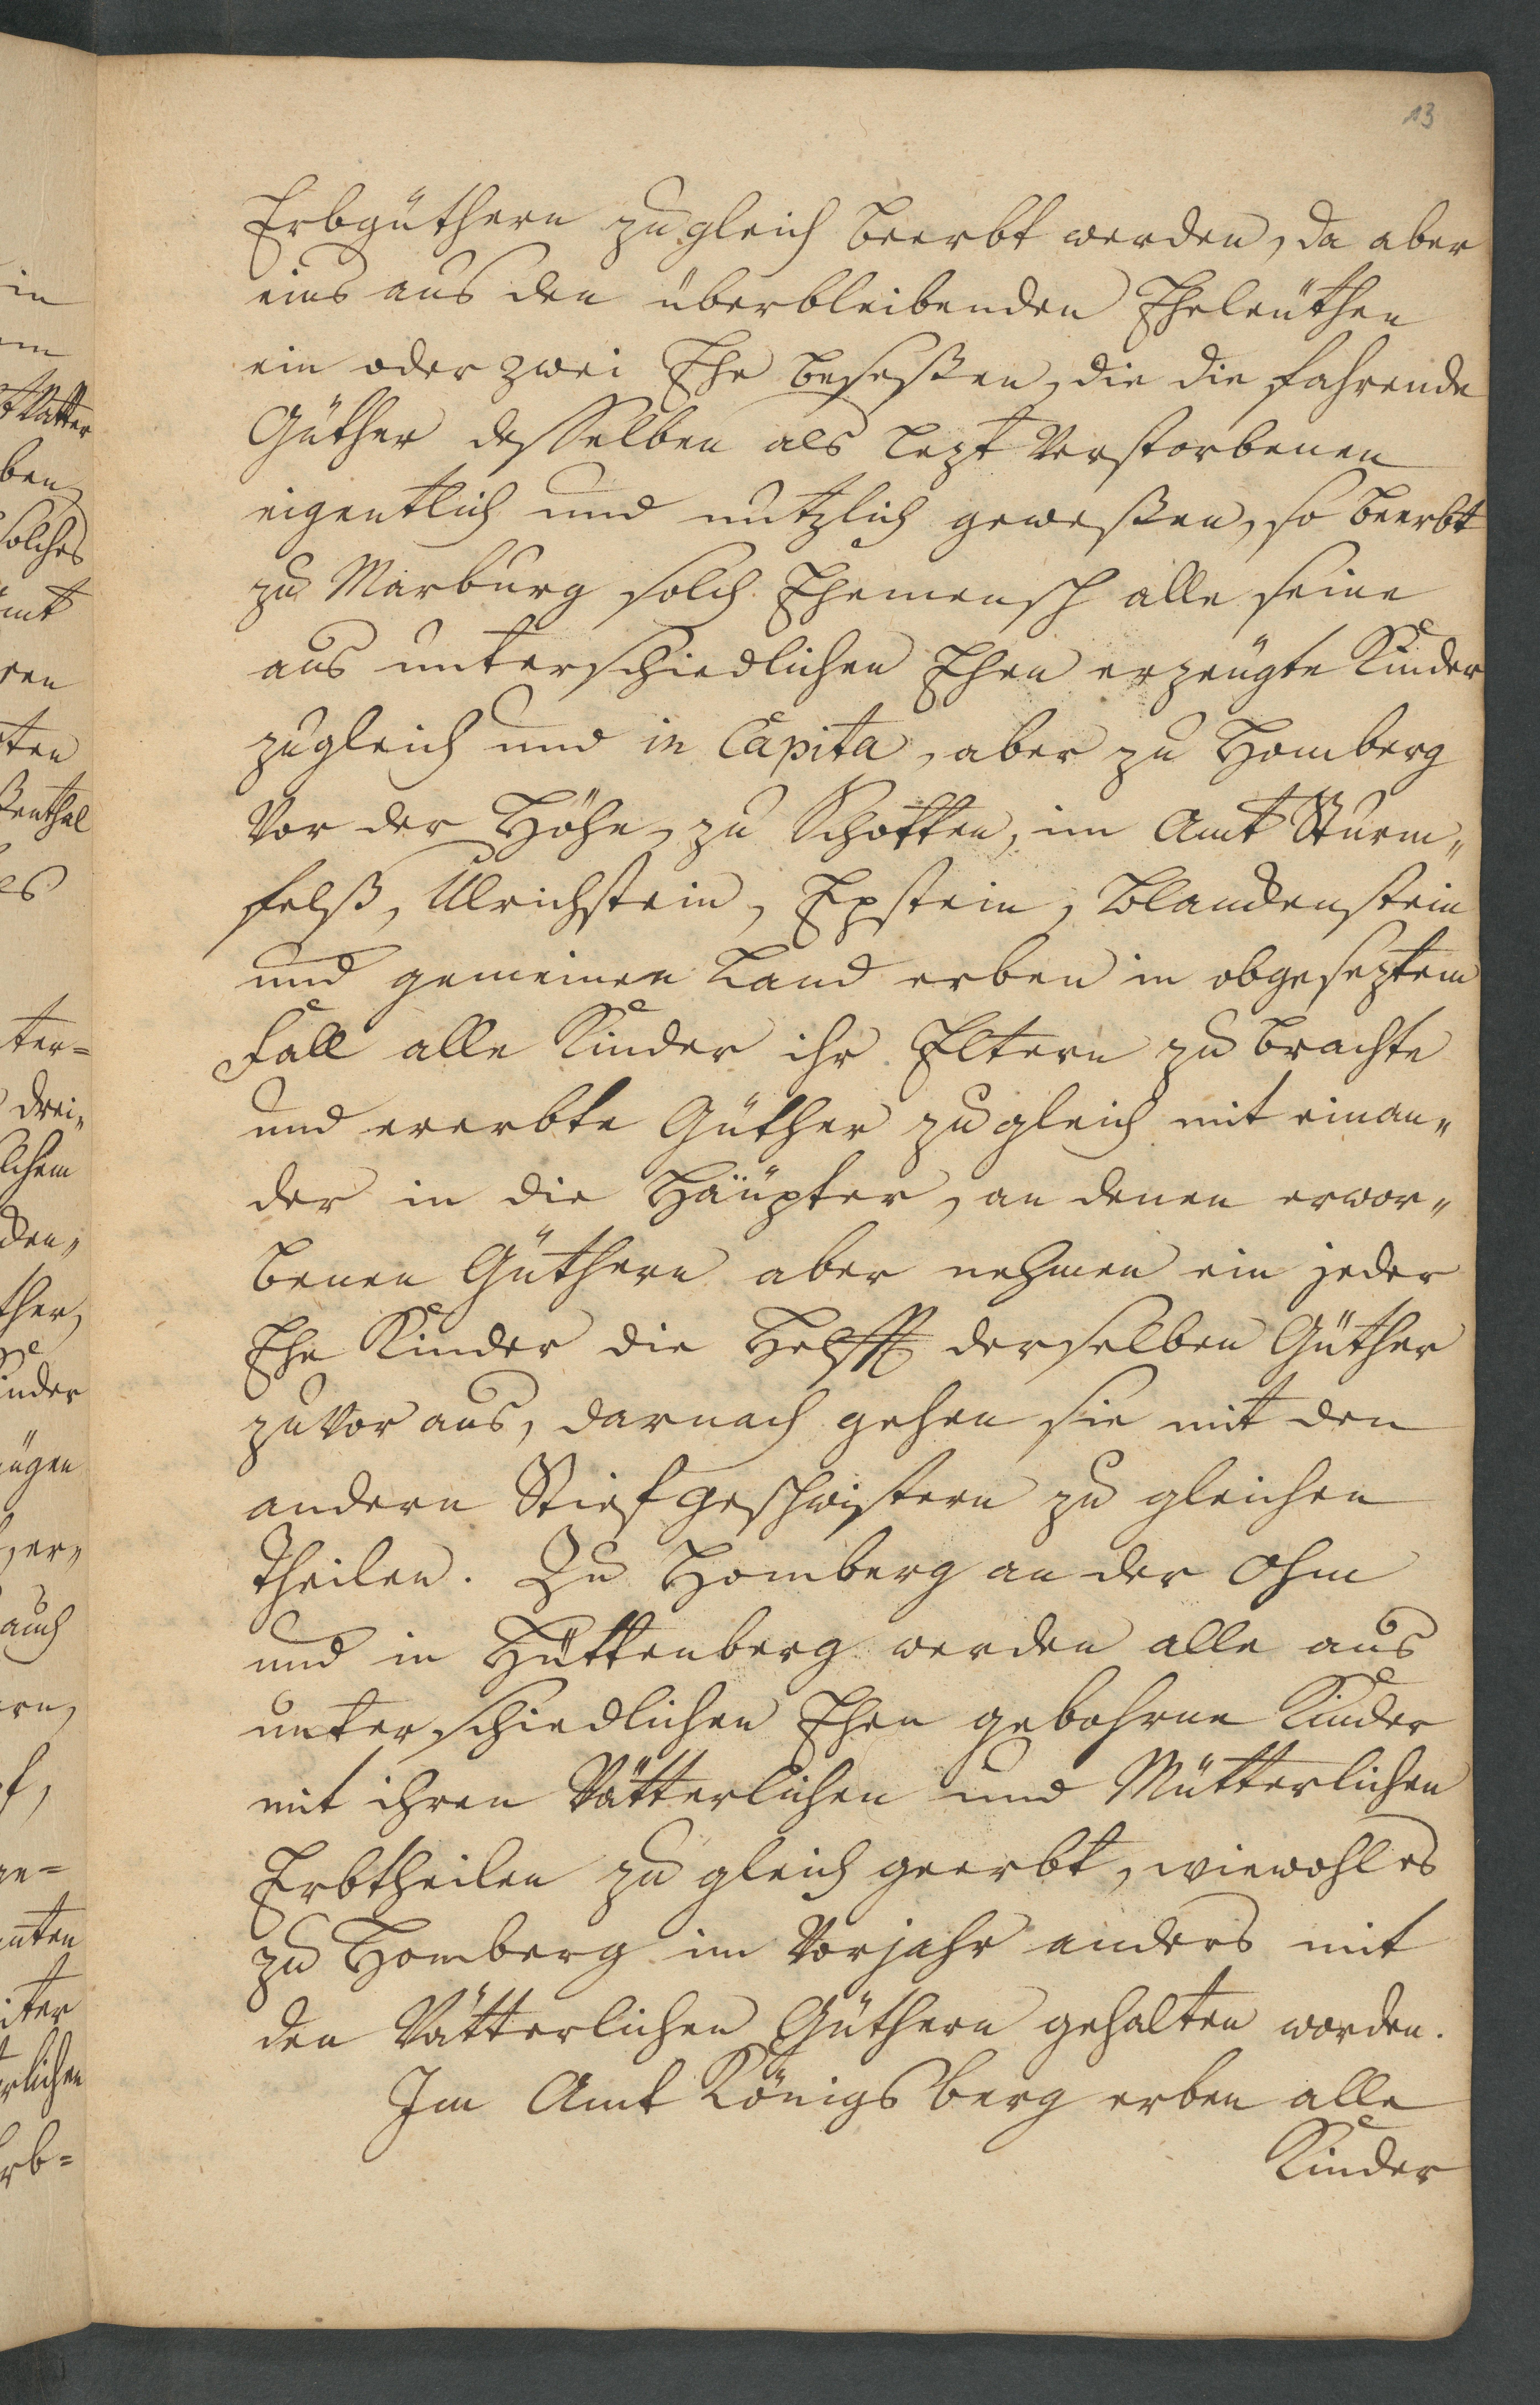 13
Erbgüthern zugleich beerbt werden, da aber
eins aus den überbleibenden Eheleuthen
ein oder zwei Ehe beseßen, die die fahrende
Güther desselben als lezt Verstorbenen
eigentlich und nutzlich geweßen, so beerbt
zu Marburg solch Ehemensch alle seine
aus unterschiedlichen Ehen erzeugte Kinder
zugleich und in Capita, aber zu Homberg
Vor der Höhe, zu Schotten, im Amt Sturm„
felß, Ulrichstein, Epstein, Blandenstein
und gemeinen Land erben in obgeseztem
Fall alle Kinder ihr Eltern zu brachte
und ererbte Güther zugleich mit einan„
der in die Häüpter, an denen erwor„
benen Güthern aber nehmen ein jeder
Ehe Kinder die Helfft derselben Güther
zuvor aus, darnach gehen sie mit den
andern Stiefgeschwistern zu gleichen
Theilen. Zu Homberg an der Ohm
und in Hüttenberg werden alle aus
unterschiedlichen Ehen gebohrne Kinder
mit ihren Vätterlichen und Mütterlichen
Erbtheilen zu gleich geerbt, wiewohl es
zu Homberg im Vorjahr anders mit
den Vätterlichen Güthern gehalten worden.
Im Amt Königsberg erben alle
Kinder